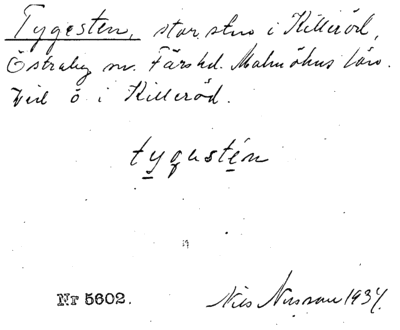 Tygesten, stor sten i Killeröd,
Östraby sn. Färs hd. Malmöhus län.
Vid å i Killeröd.
tygestén
Nr 5602.
Nils 1934.